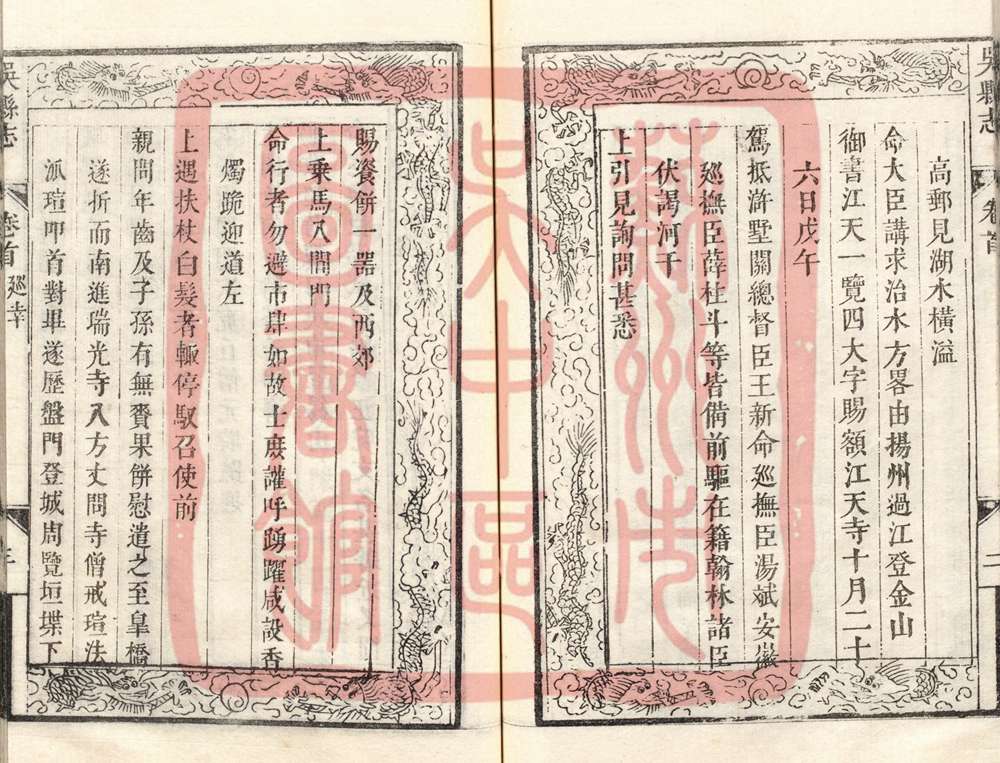 吳縣志
卷首
二
高郵見湖水橫溢
命大臣講求治水方畧由揚州過江登金山
御書江天一覽四大字賜額江天寺十月二十
六日戊午
駕抵滸墅關總督臣王新命巡撫臣湯斌安徽
巡撫臣薛柱斗等皆備前驅在籍翰林諸臣
伏謁河干
上引見詢問甚悉
賜餈餅一器及西郊
上乘馬入閶門
命行者勿避市肆如故士庻讙呼踴躍咸設香
燭跪迎道左
上遇扶杖白髮者輙停馭召使前
親問年齒及子孫有無賚果餅慰遣之至臯橋
遂折而南進瑞光寺入方丈問寺僧戒瑄法
派瑄叩首對畢遂歷盤門登城周覽垣堞下
吳縣志
卷首 廵幸
三
蘇州市
吳中區
圖書館